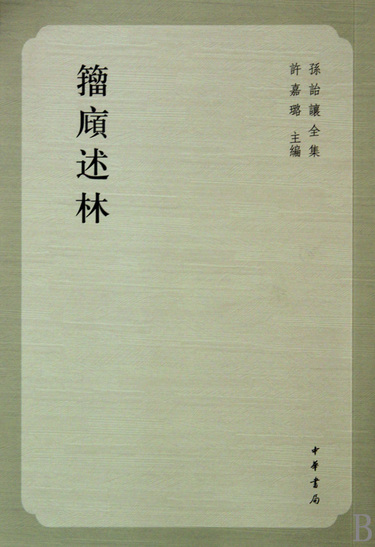 孫詒讓全集
許嘉璐 主編
籀廎述林
中華書局
B